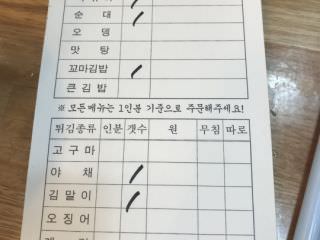 순 대
오 뎅
맛 탕
꼬마김밥
큰 김 밥
※ 모든메뉴는 1인분 기준으로 주문해주세요!
튀김종류 인분 갯수 원 무침 따로
고 구 마
야 채
김 말 이
오 징 어